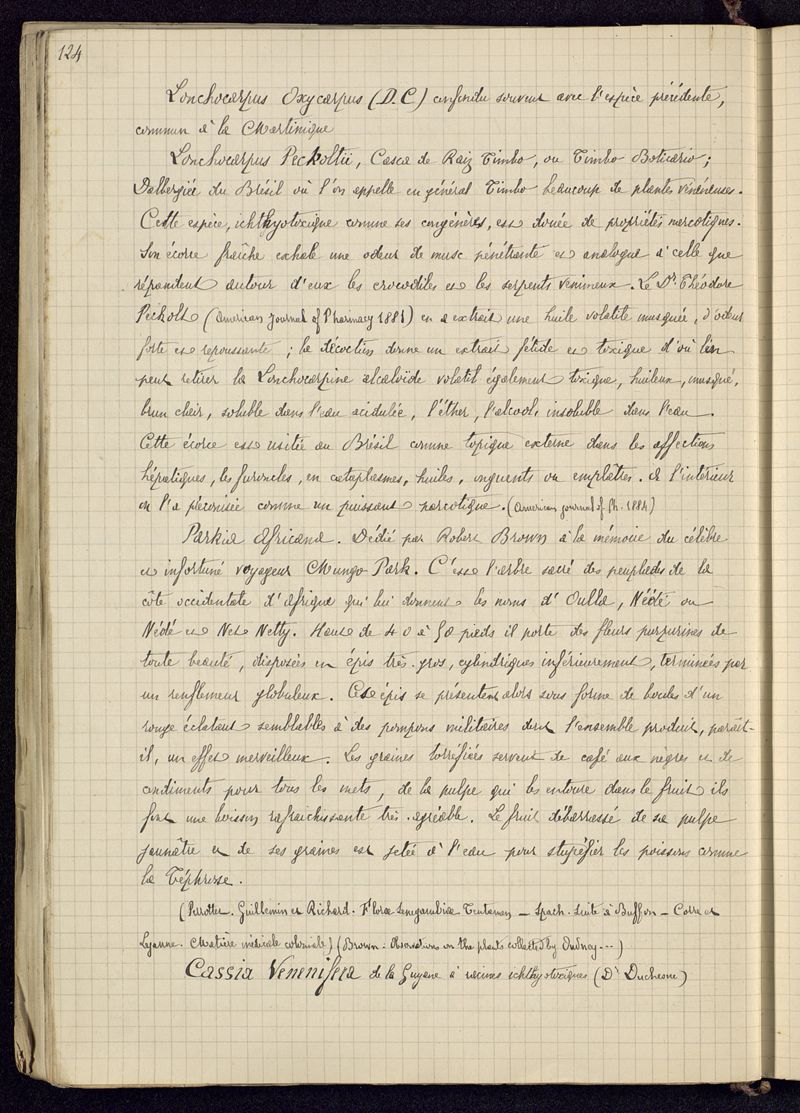 124
Lonchocarpus Oxycarpus (D.C) confondu souvent avec l'espèce précédente,
commun à la Martinique
Lonchocarpus Peckoltii, Casca de Raiz Timbo, ou Timbo Boticario;
Dalbergiée du Brésil où l'on appelle en général Timbo beaucoup de plantes vénéneuses.
Cette espèce, ichthyotoxique comme ses congénères, est douée de propriétés narcotiques.
Son écorce fraîche exhale une odeur de musc pénétrante et analogue à celle que
répandent autour d'eux les crocodiles et les serpents venimeux. Le Dr Théodore
Peckolt (American Journal of Pharmacy 1881) en a extrait une huile volatile musquée, d'odeur
forte et repoussante; la décoction donne un extrait fétide et toxique d'où l'on
peut retirer la Lonchocarpine alcaloïde volatil également toxique, huileux, musqué,
brun clair, soluble dans l'eau acidulée, l'éther, l'alcool, insoluble dans l'eau.
Cette écorce est usitée au Brésil comme topique externe dans les affections
hépatiques, les furoncles, en cataplasmes, huiles, onguents ou emplâtres. à l'intérieur
on l'a préconisée comme un puissant narcotique. (American journal of Ph. 1881)
Parkia Africana. Dédié par Robert Brown à la mémoire du célèbre
et infortuné voyageur Mungo-Park. C'est l'arbre sacré des peuplades de la
côte occidentale d'Afrique qui lui donnent les noms d'Oulla, Néété ou
Nédé et Net Netty. Haut de 40 à 50 pieds il porte des fleurs purpurines de
toute beauté, disposées en épis très-gros, cylindriques inférieurement, terminées par
un renflement globuleux. Ces épis se présentent alors sous forme de boules d'un
rouge éclatant semblables à des pompons militaires dont l'ensemble produit, paraît-
il, un effet merveilleux. Les graines torréfiées servent de café aux nègres et de
condiments pour tous les mets, de la pulpe qui les entoure dans le fruit ils
font une boisson rafraichissante très-agréable. Le fruit débarrassé de sa pulpe
jaunâtre et de ses graines est jetée à l'eau pour stupéfier les poissons comme
la Téphrosie.
(Perrottet. Guillemin et Richard. Floræ Senegambiæ Tentamen — Spach. Suite à Buffon — Corre et
Lejanne. Matière médicale coloniale) (Brown: Observations on the plants collected by Oudney...)
Cassia Venenifera de la Guyane à racines ichthyotoxiques (Dr Duchesne)